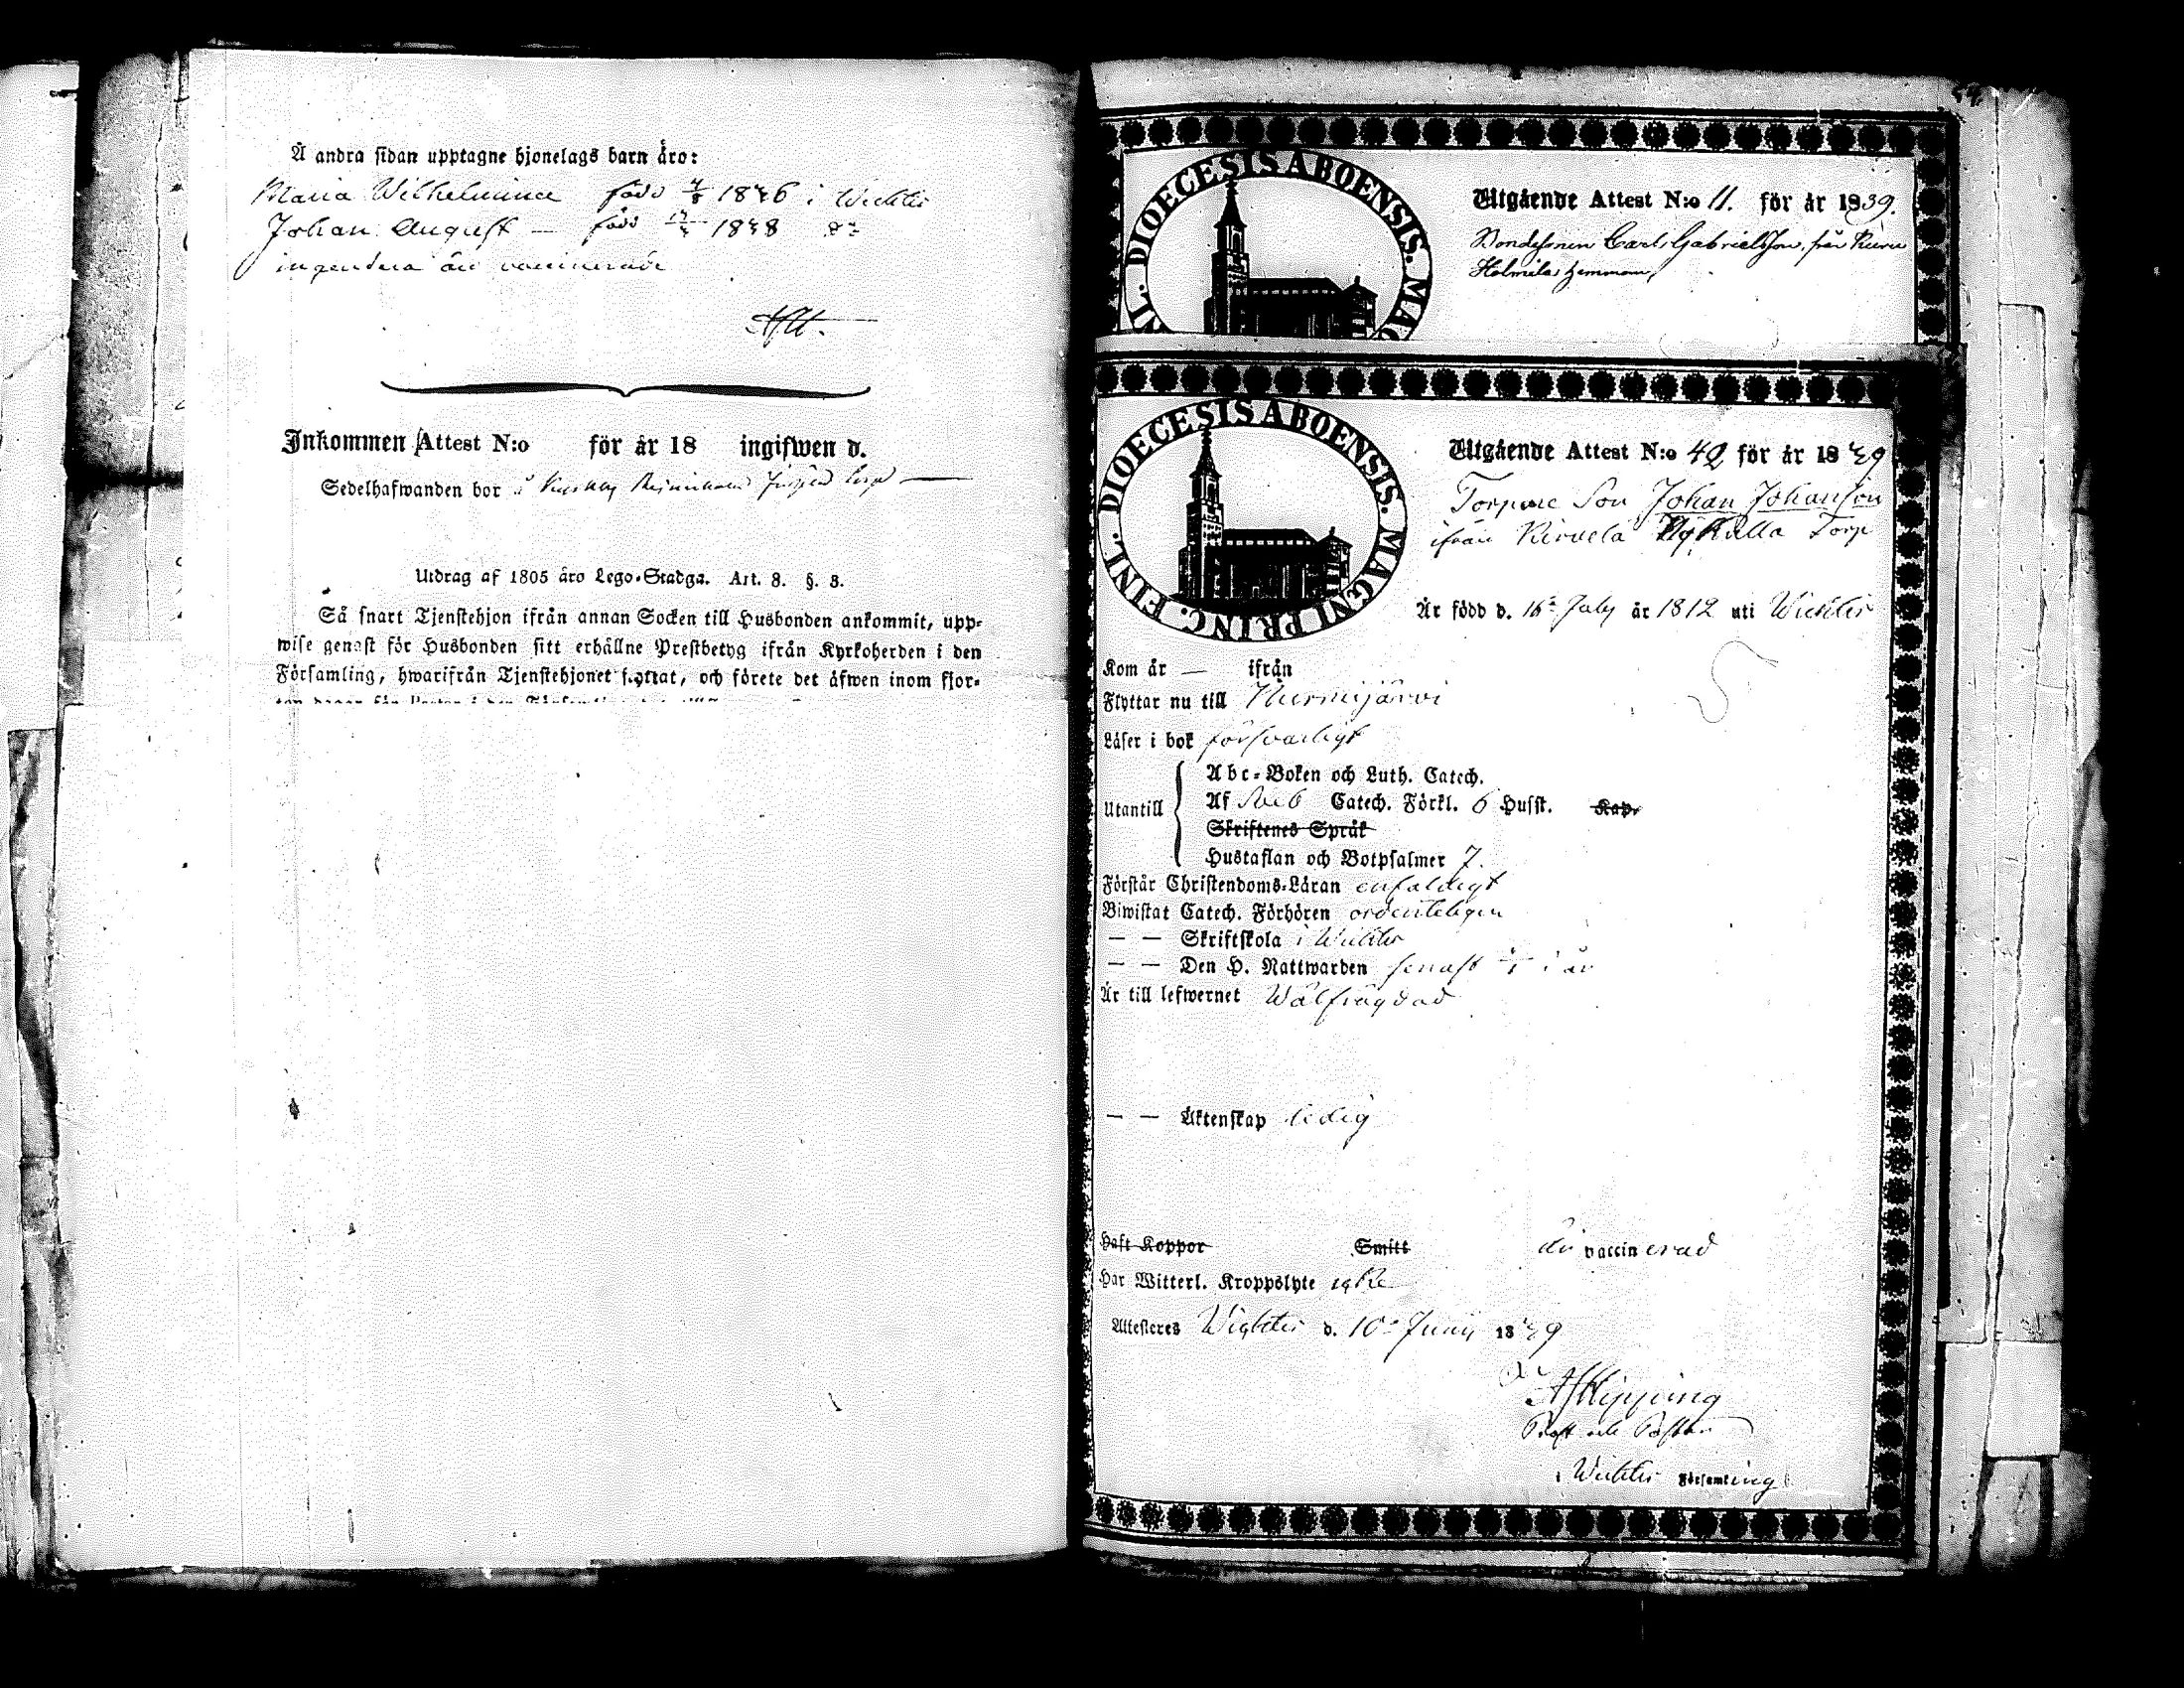 Å andra sidan upptagne hjonelags barn äro:
Maria Wilhelmina född 4/8 1836 i Wichtis
Johan August — född 1838 d:o
ingendera äro vaccinerade
Inkommen Attest N:o för år 18 ingifwen d.
Sedelhafwanden bor å Torp
Utdrag af 1805 års Lego-Stadga. Art. 8. §. 3.
Så snart Tjenstehjon ifrån annan Socken till Husbonden ankommit, upp-
wise genast för Husbonden sitt erhållne Prestbetyg ifrån Kyrkoherden i den
Församling, hwarifrån Tjenstehjonet flyttat, och förete det äfwen inom fjor-
54.
DIOECESIS ABOENSIS. MAG
Utgående Attest N:o 11. för år 1839.
Bondesonen Carl Gabrielsson, från
Holmila hemman,
DIOECESIS ABOENSIS. MAGNI PRINC. FINL.
Utgående Attest N:o 42 för år 1839
Torpare Son Johan Johansson
ifrån Kirvelä Nykulla Torp
Är född d. 16:de July år 1812 uti Wichtis
Kom år — ifrån
Flyttar nu till Nurmijärvi
Läser i bok försvarligt
Utantill
Abc-Boken och Luth. Catech.
Af Sveb Catech. Förkl. 6 Hufst. Kap.
Skriftenes Språk
Hustaflan och Botpsalmer 7.
Förstår Christendoms-Läran enfaldigt
Biwistat Catech. Förhören ordenteligen
— — Skriftskola i Wichtis
— — Den H. Nattwarden senast i år
Är till lefwernet Wälfrägdad
— — Äktenskap ledig
Haft Koppor Smitt är vaccinerad
Har Witterl. Kroppslyte icke
Attesteres Wichtis d. 10:de Junii 1839
AfHipping
Prost och Pastor
i Wichtis Församling